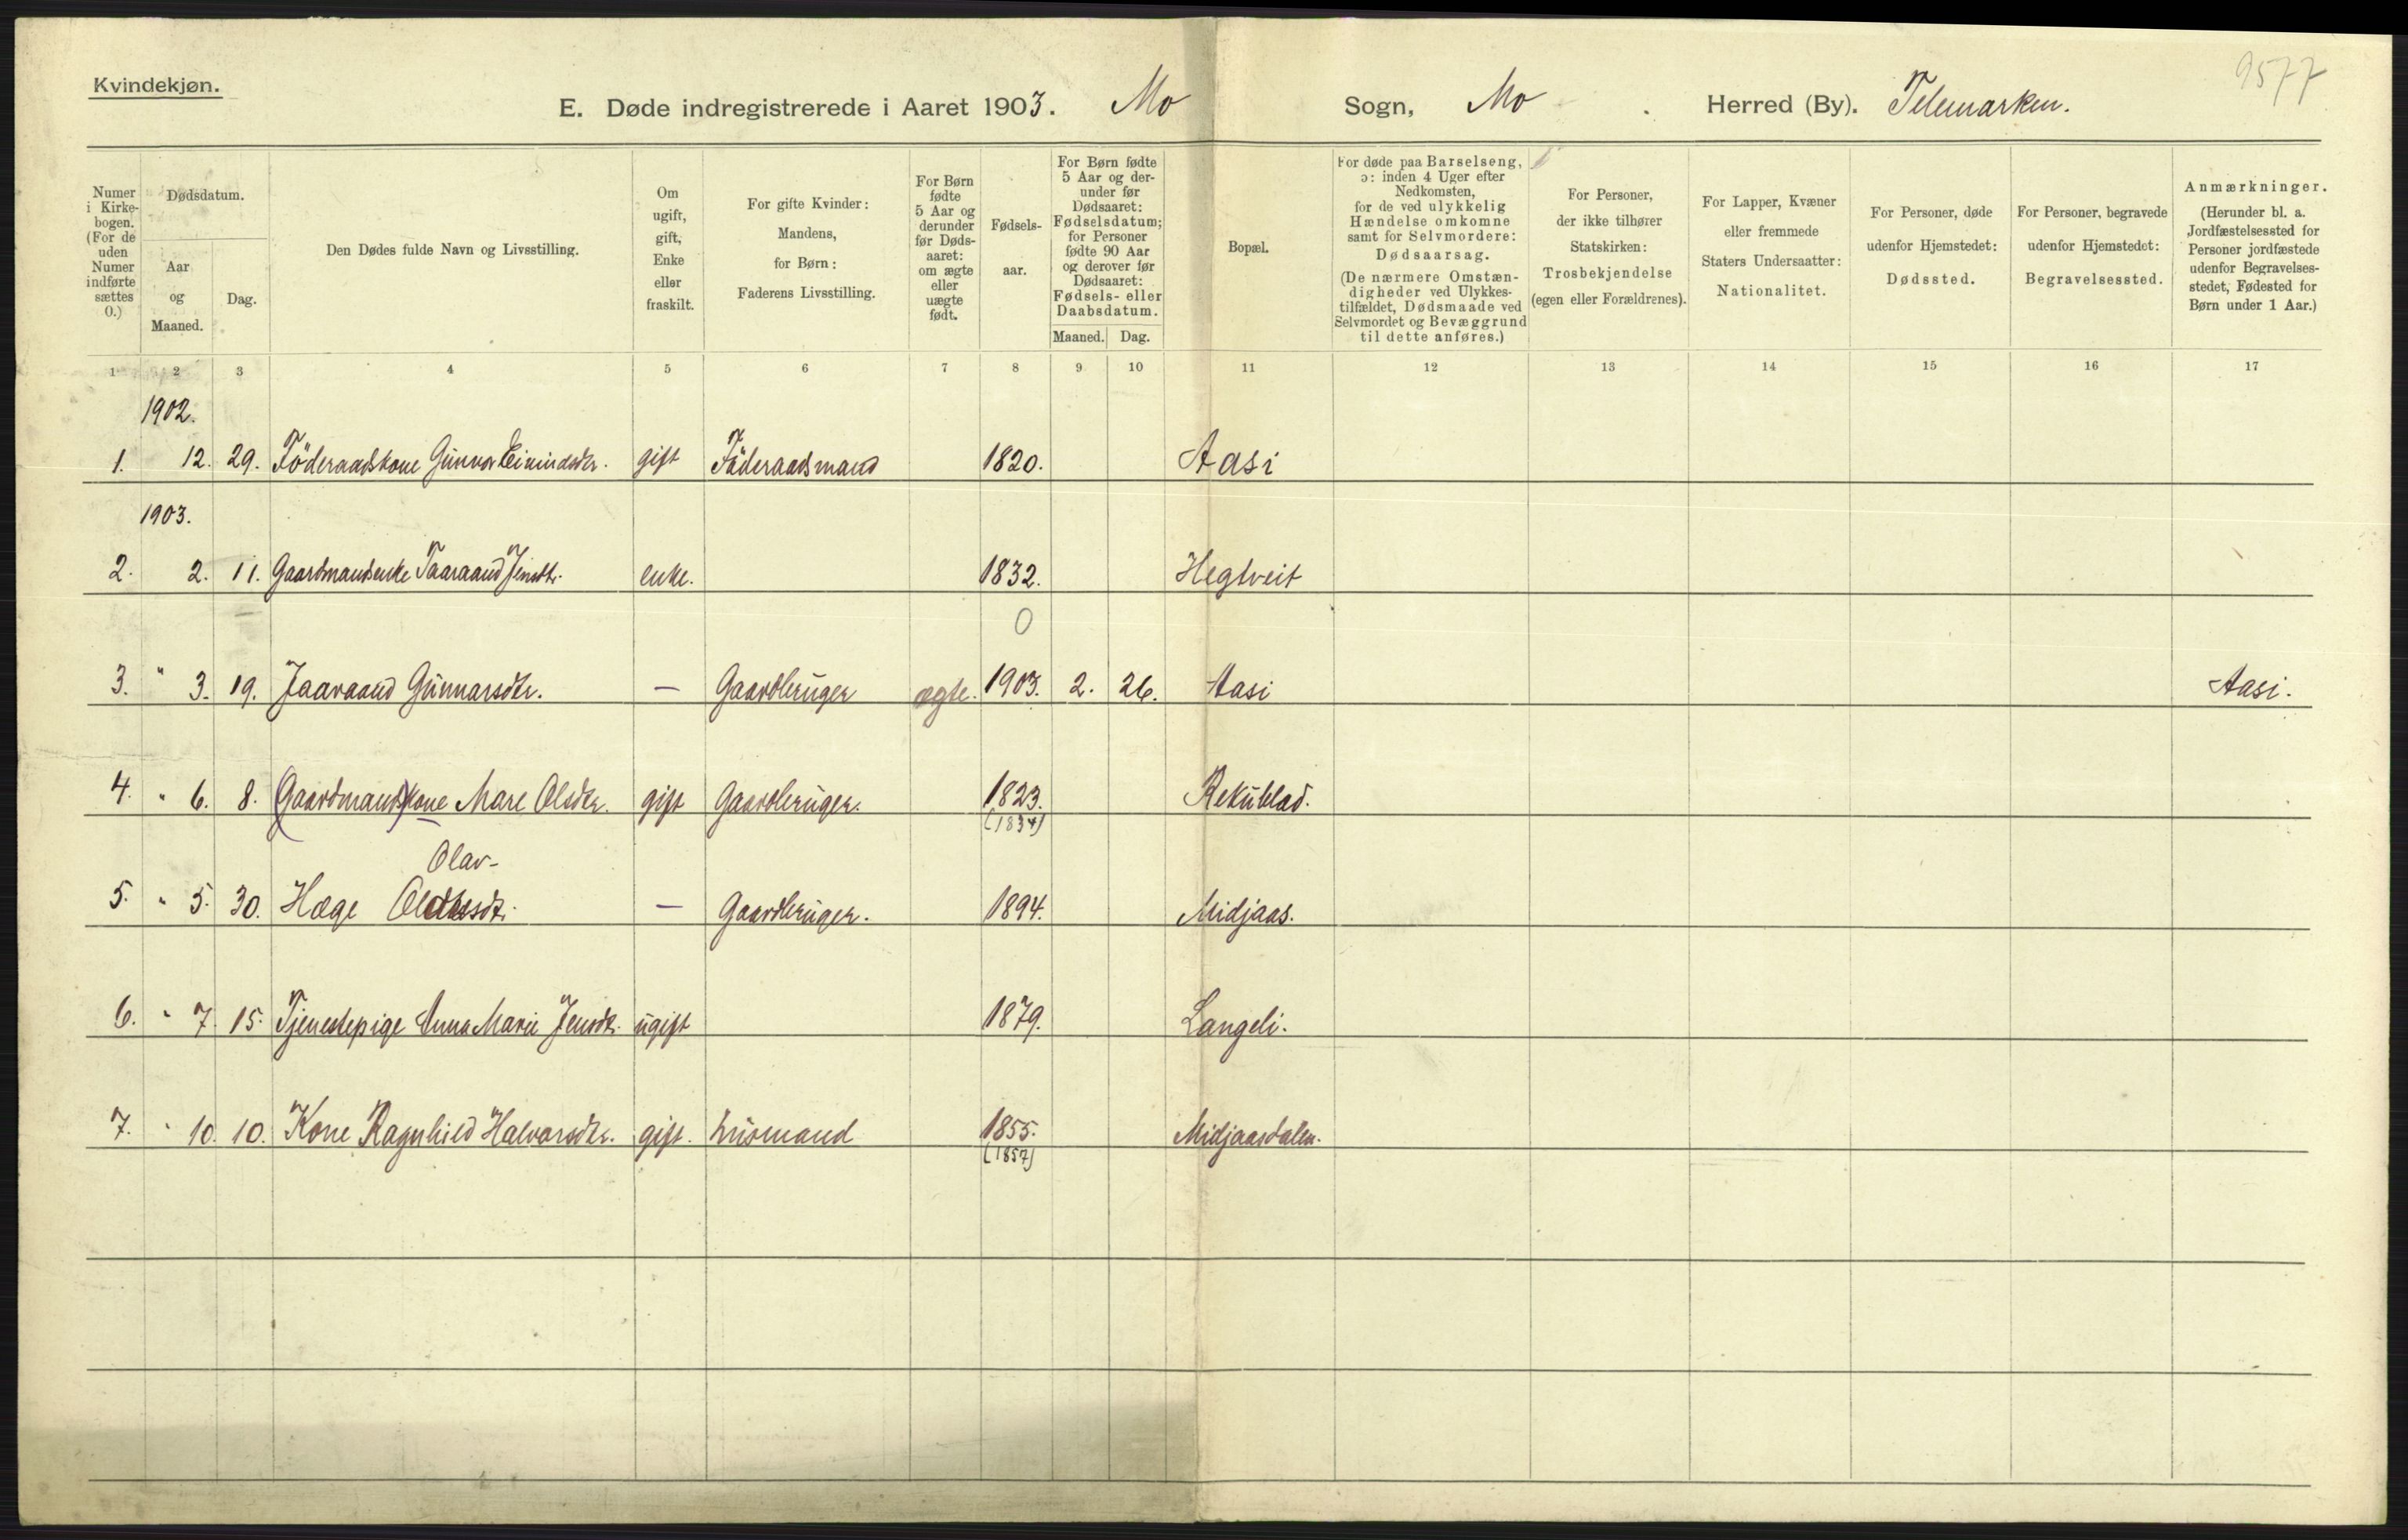 Kvindekjøn.
9577
E. Døde indregistrerede i Aaret 1903. Mo Sogn, Mo. Herred (By). Telemarken.
Numer i Kirkebogen. (For de uden Numer indførte sættes 0.)
Dødsdatum.
Aar og Maaned.
Dag.
Den Dødes fulde Navn og Livsstilling.
Om ugift, gift, Enke eller fraskilt.
For gifte Kvinder: Mandens, for Børn: Faderens Livsstilling.
For Børn fødte 5 Aar og derunder før Dødsaaret: om ægte eller uægte født.
Fødselsaar.
For Børn fødte 5 Aar og derunder før Dødsaaret: Fødselsdatum; for Personer fødte 90 Aar og derover før Dødsaaret: Fødsels- eller Daabsdatum.
Maaned. Dag.
Bopæl.
For døde paa Barselseng, ɔ: inden 4 Uger efter Nedkomsten, for de ved ulykkelig Hændelse omkomne samt for Selvmordere: Dødsaarsag. (De nærmere Omstændigheder ved Ulykkestilfældet, Dødsmaade ved Selvmordet og Bevæggrund til dette anføres.)
For Personer, der ikke tilhører Statskirken: Trosbekjendelse (egen eller Forældrenes).
For Lapper, Kvæner eller fremmede Staters Undersaatter: Nationalitet.
For Personer, døde udenfor Hjemstedet: Dødssted.
For Personer, begravede udenfor Hjemstedet: Begravelsessted.
Anmærkninger. (Herunder bl. a. Jordfæstelsessted for Personer jordfæstede udenfor Begravelsesstedet, Fødested for Børn under 1 Aar.)
1 2 3 4 5 6 7 8 9 10 11 12 13 14 15 16 17
1902.
1. 12. 29. Föderaadskone Gunvor Eivindsdtr. gift Föderaadsmand 1820. Aasi
1903.
2. 2. 11. Gaardmandsenke Taaraand Jensdtr. enke. 1832. Hegtveit
0
3. " 3. 19. Jaaraand Gunnarsdtr. — Gaardbruger ægte. 1903. 2. 26. Aasi Aasi.
4. " 6. 8. (Gaardmands)kone Mare Olsdtr. gift Gaardbruger. 1823. Rekublad.
(1834)
Olav-
5. " 5. 30. Hæge — Gaardbruger. 1894. Midjaas.
6. " 7. 15. Tjenestepige Anna Marie Jensdtr. ugift 1879. Langeli.
7. " 10. 10. Kone Ragnhild Halvorsdtr. gift. Husmand 1855. Midjaasdalen.
(1857)